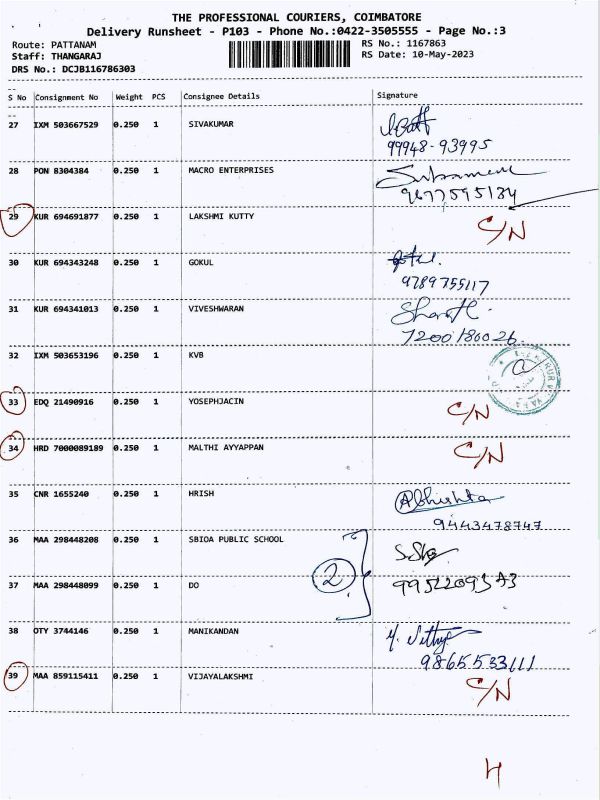 THE PROFESSIONAL COURIERS, COIMBATORE
Delivery Runsheet - P103 - Phone No.:0422-3505555 - Page No.:3
Route: PATTANAM
RS No.: 1167863
Staff: THANGARAJ
RS Date: 10-May-2023
DRS No.: DCJB116786303
S No Consignment No Weight PCS Consignee Details Signature
27 IXM 503667529 0.250 1 SIVAKUMAR
99948-93995
28 PON 8304384 0.250 1 MACRO ENTERPRISES
9877595184
29 KUR 694691877 0.250 1 LAKSHMI KUTTY C/N
30 KUR 694343248 0.250 1 GOKUL
9789755117
31 KUR 694341013 0.250 1 VIVESHWARAN
7200180026
32 IXM 503653196 0.250 1 KVB
33 EDQ 21490916 0.250 1 YOSEPHJACIN C/N
34 HRD 7000089189 0.250 1 MALTHI AYYAPPAN C/N
35 CNR 1655240 0.250 1 HRISH Abhishta
9443478747
36 MAA 298448208 0.250 1 SBIOA PUBLIC SCHOOL
2
37 MAA 298448099 0.250 1 DO
38 OTY 3744146 0.250 1 MANIKANDAN
9865533111
39 MAA 859115411 0.250 1 VIJAYALAKSHMI C/N